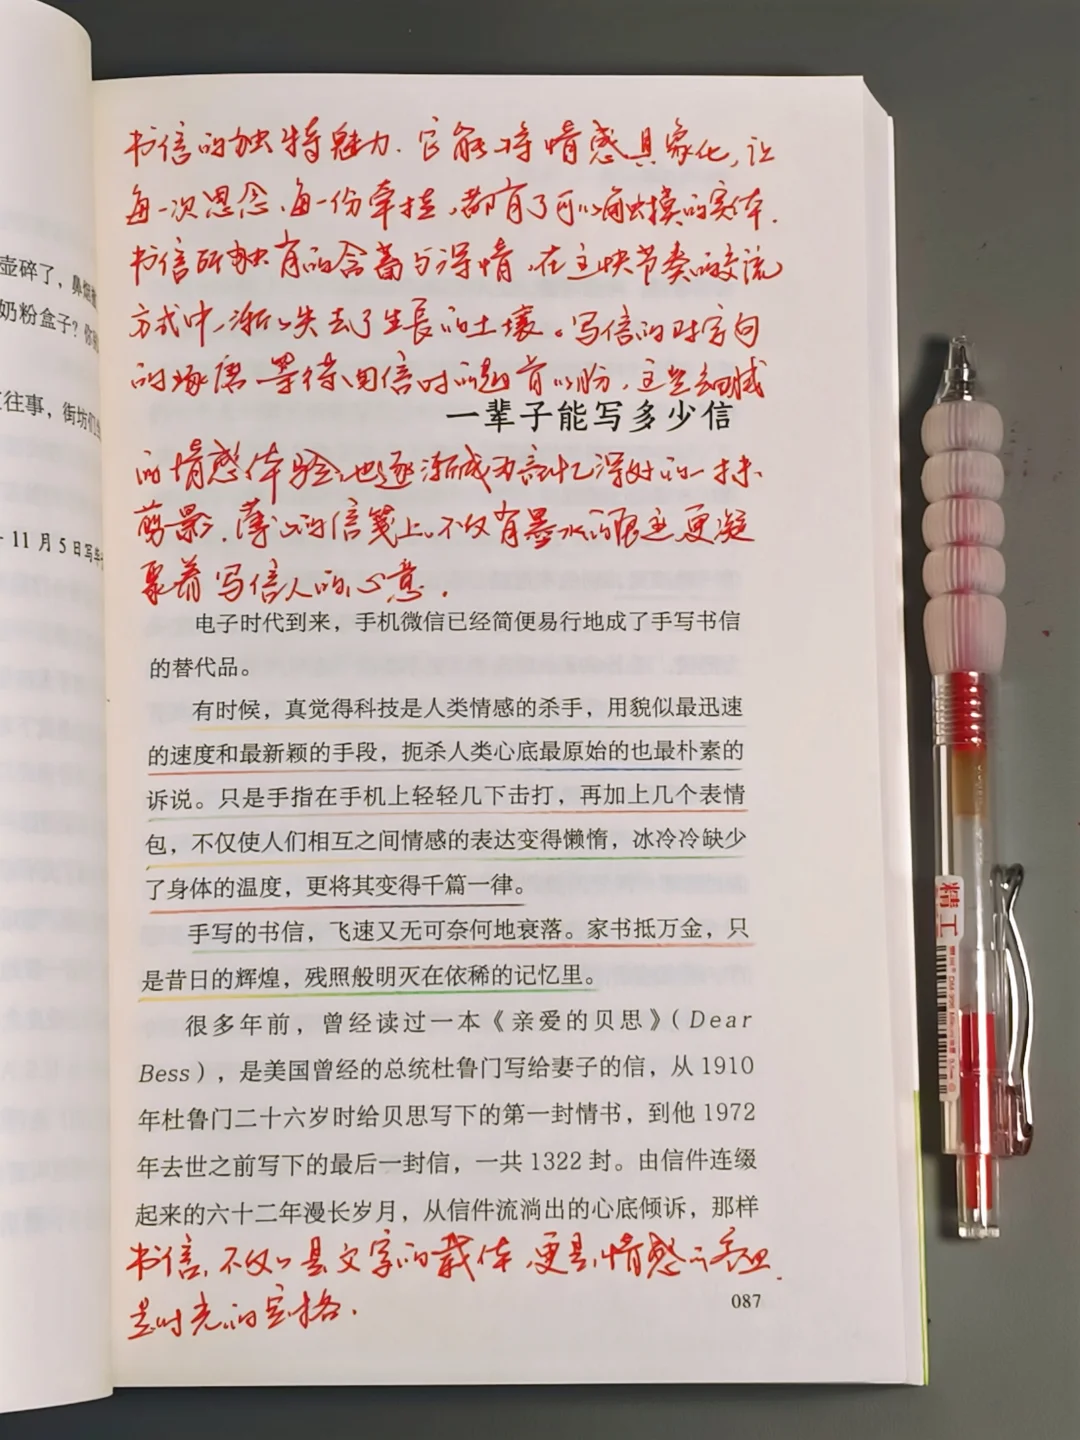 壶碎了，鼻烟
奶粉盒子？你
往事，街坊们
11月5日写毕
书信的独特魅力.它能将情感具象化,让
每一次思念,每一份牵挂,都有了可以触摸的实体.
书信所独有的含蓄与深情,在这快节奏的交流
方式中,渐渐失去了生长的土壤。写信时对字句
的琢磨,等待回信时的翘首以盼,这些细腻
一辈子能写多少信
的情感体验,也逐渐成为记忆深处的一抹
剪影.薄薄的信笺上.不仅有墨水的痕迹,更凝
聚着写信人的心意.
电子时代到来，手机微信已经简便易行地成了手写书信
的替代品。
有时候，真觉得科技是人类情感的杀手，用貌似最迅速
的速度和最新颖的手段，扼杀人类心底最原始的也最朴素的
诉说。只是手指在手机上轻轻几下击打，再加上几个表情
包，不仅使人们相互之间情感的表达变得懒惰，冰冷冷缺少
了身体的温度，更将其变得千篇一律。
手写的书信，飞速又无可奈何地衰落。家书抵万金，只
是昔日的辉煌，残照般明灭在依稀的记忆里。
很多年前，曾经读过一本《亲爱的贝思》（Dear
Bess），是美国曾经的总统杜鲁门写给妻子的信，从1910
年杜鲁门二十六岁时给贝思写下的第一封情书，到他1972
年去世之前写下的最后一封信，一共1322封。由信件连缀
起来的六十二年漫长岁月，从信件流淌出的心底倾诉，那样
书信,不仅是文字的载体,更是情感的
是时光的定格.
087
精工